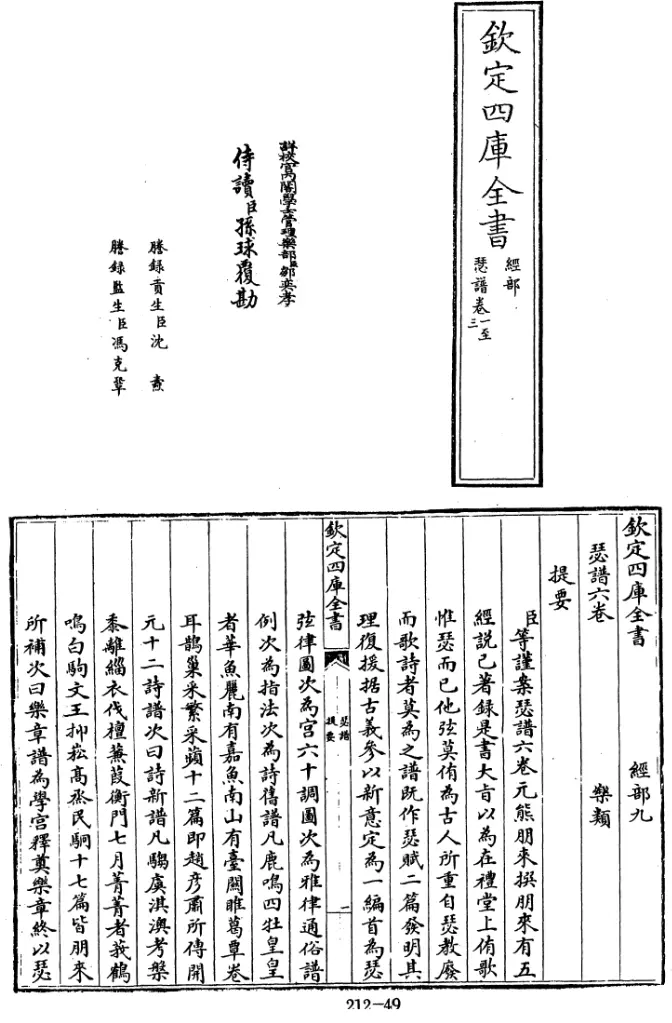 欽定四庫全書
經部
瑟譜卷一至三
詳校官內閣學士管理樂部臣鄒奕孝
侍讀臣孫球覆勘
謄録貢生臣沈
謄録監生臣馮克鞏
欽定四庫全書
經部九
瑟譜六卷
樂類
提要
臣等謹案瑟譜六卷元熊朋來撰朋來有五
經説已著録是書大旨以為在禮堂上侑歌
惟瑟而已他弦莫侑為古人所重自瑟教廢
而歌詩者莫為之譜既作瑟賦二篇發明其
理復援据古義參以新意定為一編首為瑟
欽定四庫全書
瑟譜
提要
一
弦律圖次為宫六十調圖次為雅律通俗譜
例次為指法次為詩舊譜凡鹿鳴四牡皇皇
者華魚麗南有嘉魚南山有臺關雎葛覃卷
耳鵲巢采繁采蘋十二篇即趙彦肅所傳開
元十二詩譜次曰詩新譜凡騶虞淇澳考槃
黍離緇衣伐檀蒹葭衡門七月菁菁者莪鶴
鳴白駒文王抑崧髙烝民駉十七篇皆朋來
所補次曰樂章譜為學宫釋奠樂章終以瑟
212-49